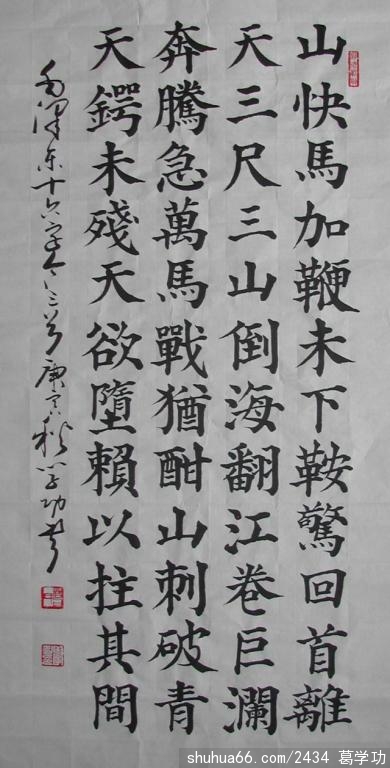 山快馬加鞭未下鞍驚回首離
天三尺三山倒海翻江卷巨瀾
奔騰急萬馬戰猶酣山刺破青
天鍔未殘天欲墮賴以拄其間
毛泽东十六字令三首庚寅秋学功书
shuhua66.com/2434 葛学功